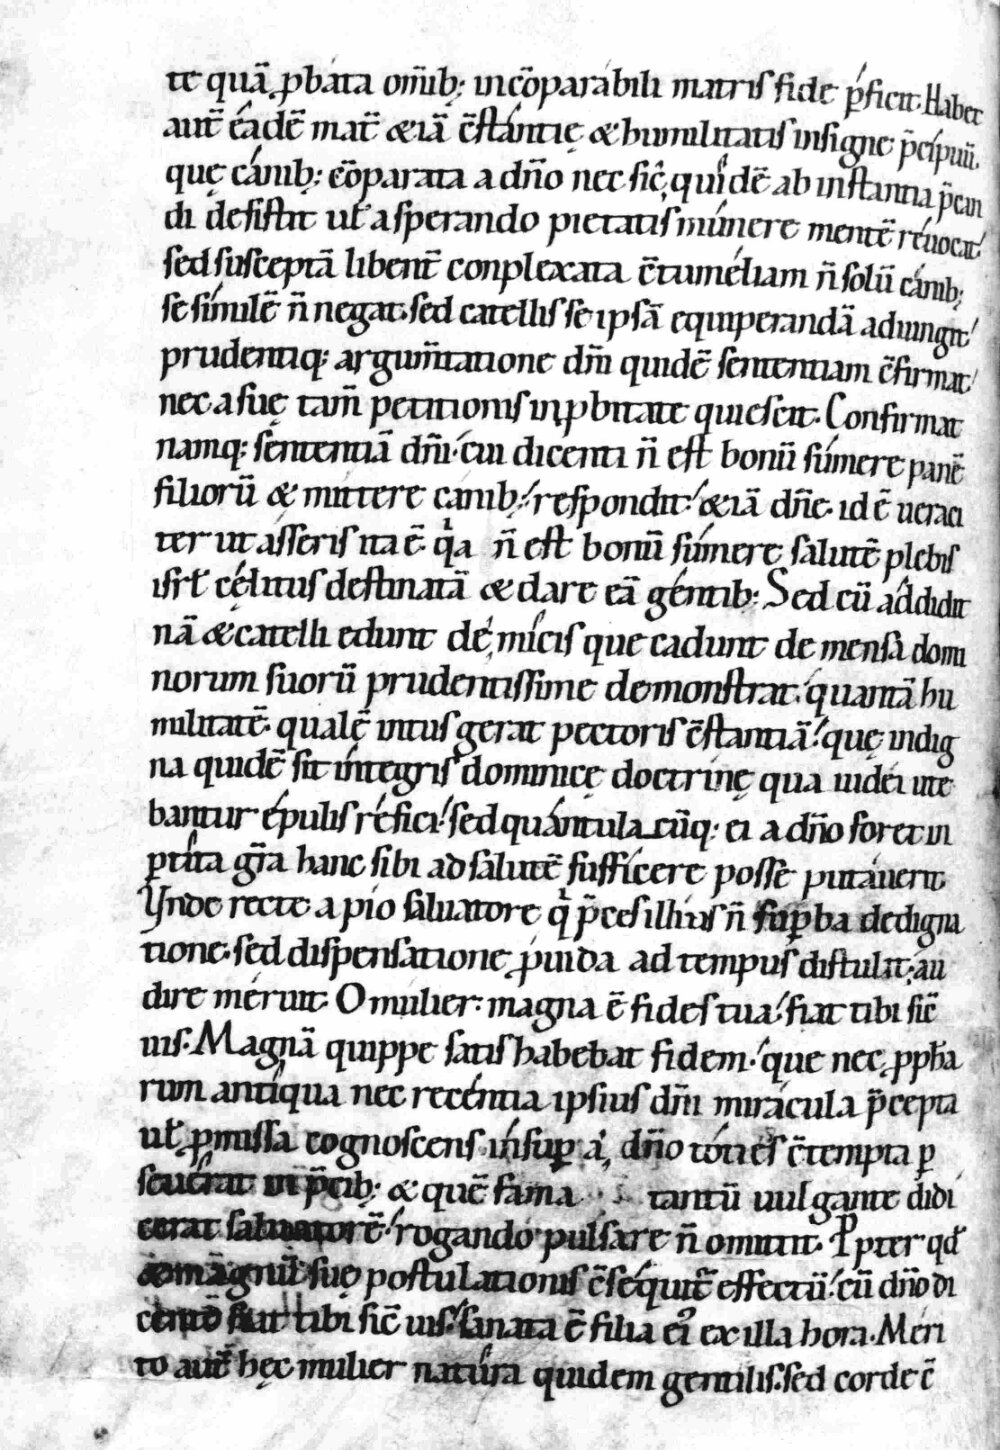 te quā ꝓbata om̄ib; incōparabili matris fide ꝑficit. Habet
aut̄ eadē mat̄ &iā c̄stantię & humilitatis insigne p̄cipuū.
quę canib; cōparata a dn̄o nec sic quidē ab instantia p̄can
di desistit ut̄ asperando pietatis munere mentē reuocat.
sed susceptā libent̄ conplexata c̄tumeliam n̄ solū canib;
se similē n̄ negat. sed catellis se ipsā equiperandā adiungit.
prudentiq; argum̄tatione dn̄i quidē sententiam c̄firmat.
nec a suę tam̄ petitionis inꝓbitate quiescit. Confirmat
namq; sententiā dn̄i. cui dicenti n̄ est bonū sumere panē
filiorū & mittere canib; respondit. &iā dn̄e. id ē ueraci
ter ut asseris ita ē. qͥa n̄ est bonū sumere salutē plebis
isrł cęlitus destinatā & dare eā gentib; Sed cū addidit
nā & catelli edunt de micis que cadunt de mensa domi
norum suorū prudentissime demonstrat. quantā hu
militatē. qualē intus gerat pectoris c̄stantiā. quę indig
na quidē sit integris dominicę doctrinę qua iudei ute
bantur epulis refici. sed quantulacūq; ei a dn̄o foret in
ꝑtita gr̄a hanc sibi ad salutē sufficere posse putauerit.
Vnde recte a pio saluatore qͥ p̄ces illius n̄ suꝑba dedigna
tione. sed dispensatione ꝓuida ad tempus distulit. au
dire meruit. O mulier. magna ē fides tua. fiat tibi sic̄
uis. Magnā quippe satis habebat fidem. que nec ꝓph̄a
rum antiqua nec recentia ipsius dn̄i miracula p̄cepta
ut̄ ꝓmissa cognoscens insuꝑ a dn̄o toties c̄tempta ꝑ
seuerat in p̄cib; & quē fama tantū uulgante didi
cerat saluatorē. rogando pulsare n̄ omittit. Ꝓpter qd̄
& magnū suę postulationis c̄sequit̄ effectū. cū dn̄o di
cente fiat tibi sic̄ uis. sanata ē filia ei᾽ ex illa hora. Meri
to aut̄ hęc mulier natura quidem gentilis. sed corde c̄